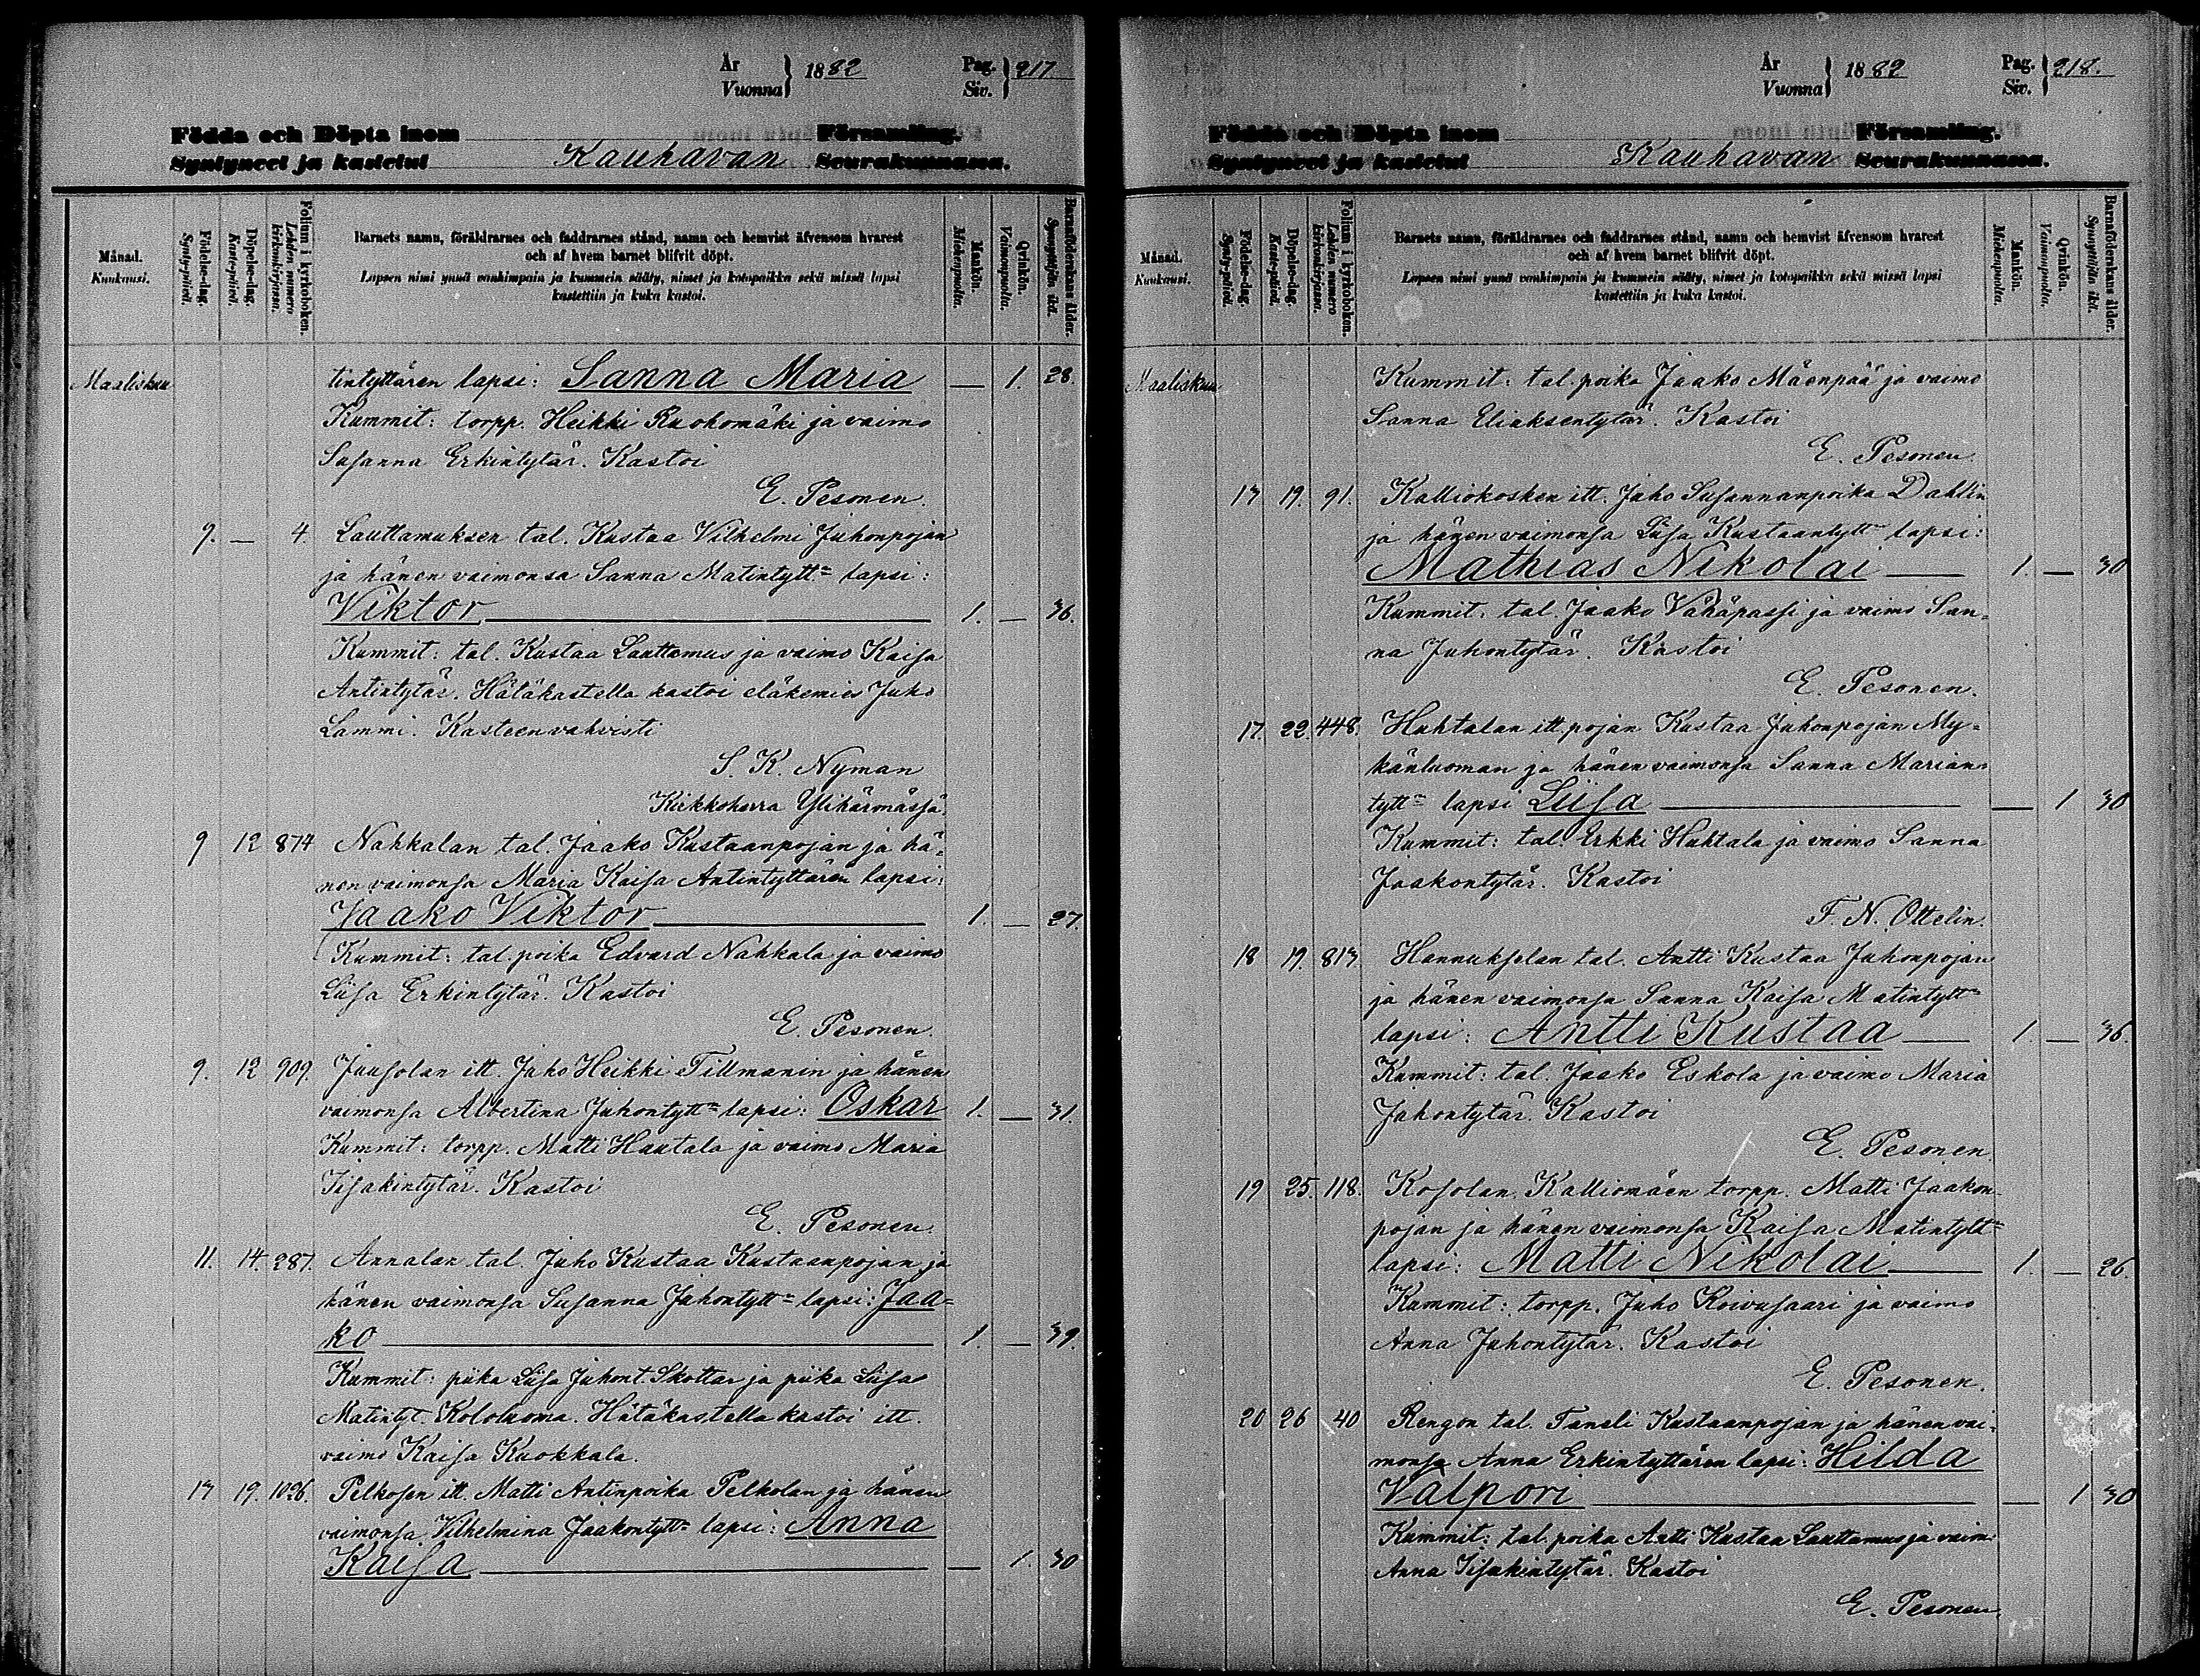 År
Vuonna } 1882
Pag.
Siv. } 217
Födda och Döpta inom Församling.
Syntyneet ja kastetut Kauhavan Seurakunnassa.
Månad.
Kuukausi.
Födelse-dag.
Synty-päivä.
Döpelse-dag.
Kaste-päivä.
Folium i kyrkoboken.
Lehden numero kirkonkirjassa.
Barnets namn, föräldrarnes och faddrarnes stånd, namn och hemvist äfvensom hvarest
och af hvem barnet blifvit döpt.
Lapsen nimi ynnä vanhimpain ja kummein sääty, nimet ja kotopaikka sekä missä lapsi
kastettiin ja kuka kastoi.
Mankön.
Miehenpuolta.
Qvinkön.
Vaimonpuolta.
Barnaföderskans ålder.
Synnyttäjän ikä.
Maaliskuu tintyttären lapsi: Sanna Maria — 1. 28.
Kummit: torpp. Heikki Ruohomäki ja vaimo
Susanna Erkintytär. Kastoi
E. Pesonen.
9. — 4. Lauttamuksen tal. Kustaa Vilhelmi Juhonpojan
ja hänen vaimonsa Sanna Matintytt:n lapsi:
Viktor 1. — 36.
Kummit: tal. Kustaa Lauttamus ja vaimo Kaisa
Antintytär. Hätäkastella kastoi eläkemies Juho
Lammi. Kasteen vahvisti
S. K. Nyman
Kirkkoherra Ylihärmässä.
9 12 874 Nahkalan tal. Jaako Kustaanpojan ja hä-
nen vaimonsa Maria Kaisa Antintyttären lapsi:
Jaako Viktor 1. — 27.
Kummit: tal. poika Edvard Nahkala ja vaimo
Liisa Erkintytär. Kastoi
E. Pesonen.
9. 12 909. Jausolan itt. Juho Heikki Tillmanin ja hänen
vaimonsa Albertina Juhontytt:n lapsi: Oskar 1. — 31.
Kummit: torpp. Matti Hautala ja vaimo Maria
Iisakintytär. Kastoi
E. Pesonen.
11. 14. 287. Annalan tal. Juho Kustaa Kustaanpojan ja
hänen vaimonsa Susanna Juhontytt:n lapsi: Jaa-
ko 1. — 39.
Kummit: piika Liisa Juhont. Skottar ja piika Liisa
Matintyt. Kololuoma. Hätäkastella kastoi itt.
vaimo Kaisa Kuokkala.
17 19. 1026. Pelkosen itt. Matti Antinpoika Pelkolan ja hänen
vaimonsa Vilhelmina Jaakontytt:n lapsi: Anna
Kaisa — 1. 30
År
Vuonna } 1882
Pag.
Siv. } 218.
Födda och Döpta inom Församling.
Syntyneet ja kastetut Kauhavan Seurakunnassa.
Månad.
Kuukausi.
Födelse-dag.
Synty-päivä.
Döpelse-dag.
Kaste-päivä.
Folium i kyrkoboken.
Lehden numero kirkonkirjassa.
Barnets namn, föräldrarnes och faddrarnes stånd, namn och hemvist äfvensom hvarest
och af hvem barnet blifvit döpt.
Lapsen nimi ynnä vanhimpain ja kummein sääty, nimet ja kotopaikka sekä missä lapsi
kastettiin ja kuka kastoi.
Mankön.
Miehenpuolta.
Qvinkön.
Vaimonpuolta.
Barnaföderskans ålder.
Synnyttäjän ikä.
Maaliskuu Kummit: tal. poika Jaako Mäenpää ja vaimo
Sanna Eliaksentytär. Kastoi
E. Pesonen.
17 19. 91. Kalliokosken itt. Juho Susannanpoika Dahlin
ja hänen vaimonsa Liisa Kustaantytt:n lapsi:
Mathias Nikolai 1. — 30
Kummit: tal. Jaako Vähäpassi ja vaimo San-
na Juhontytär. Kastoi
E. Pesonen.
17. 22. 448. Huhtalan itt. pojan Kustaa Juhonpojan My-
känluoman ja hänen vaimonsa Sanna Marian-
tytt:n lapsi Liisa — 1 30
Kummit: tal. Erkki Huhtala ja vaimo Sanna
Jaakontytär. Kastoi
F. N. Ottelin.
18 19. 813. Hannukselan tal. Antti Kustaa Juhonpojan
ja hänen vaimonsa Sanna Kaisa Matintytt:n
lapsi: Antti Kustaa 1. — 36.
Kummit: tal. Jaako Eskola ja vaimo Maria
Juhontytär. Kastoi
E. Pesonen.
19 25. 118. Kosolan Kalliomäen torpp. Matti Jaakon-
pojan ja hänen vaimonsa Kaisa Matintytt:n
lapsi: Matti Nikolai 1. — 26.
Kummit: torpp. Juho Koivusaari ja vaimo
Anna Juhontytär. Kastoi
E. Pesonen.
20 26 40 Rengon tal. Taneli Kustaanpojan ja hänen vai-
monsa Anna Erkintyttären lapsi: Hilda
Valpori — 1 30
Kummit: tal. poika Antti Kustaa Lauttamus ja vaim:
Anna Iisakintytär. Kastoi
E. Pesonen.